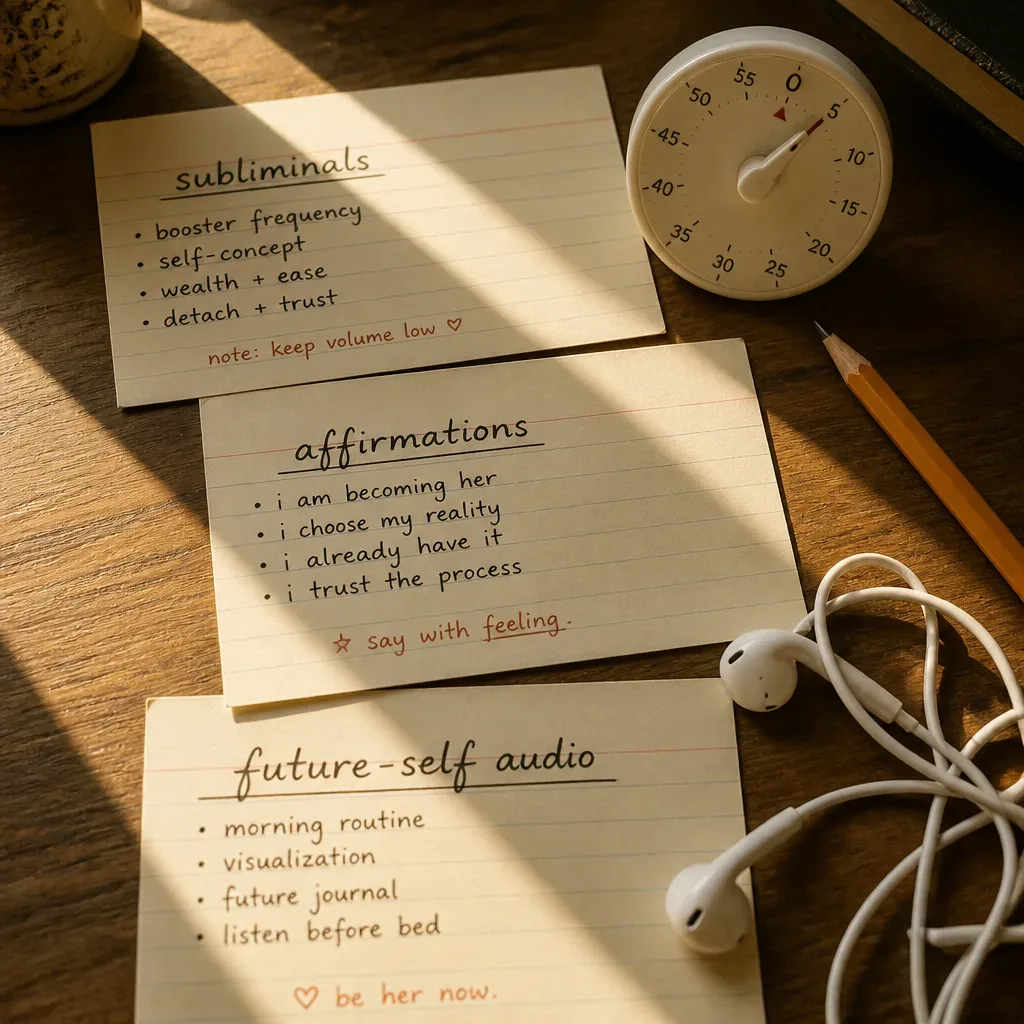 subliminals
• booster frequency
• self-concept
• wealth + ease
• detach + trust
note: keep volume low ♡
0
5
10
15
20
25
30
35
40
45
50
55
affirmations
• i am becoming her
• i choose my reality
• i already have it
• i trust the process
☆ say with feeling.
future-self audio
• morning routine
• visualization
• future journal
• listen before bed
♡ be her now.